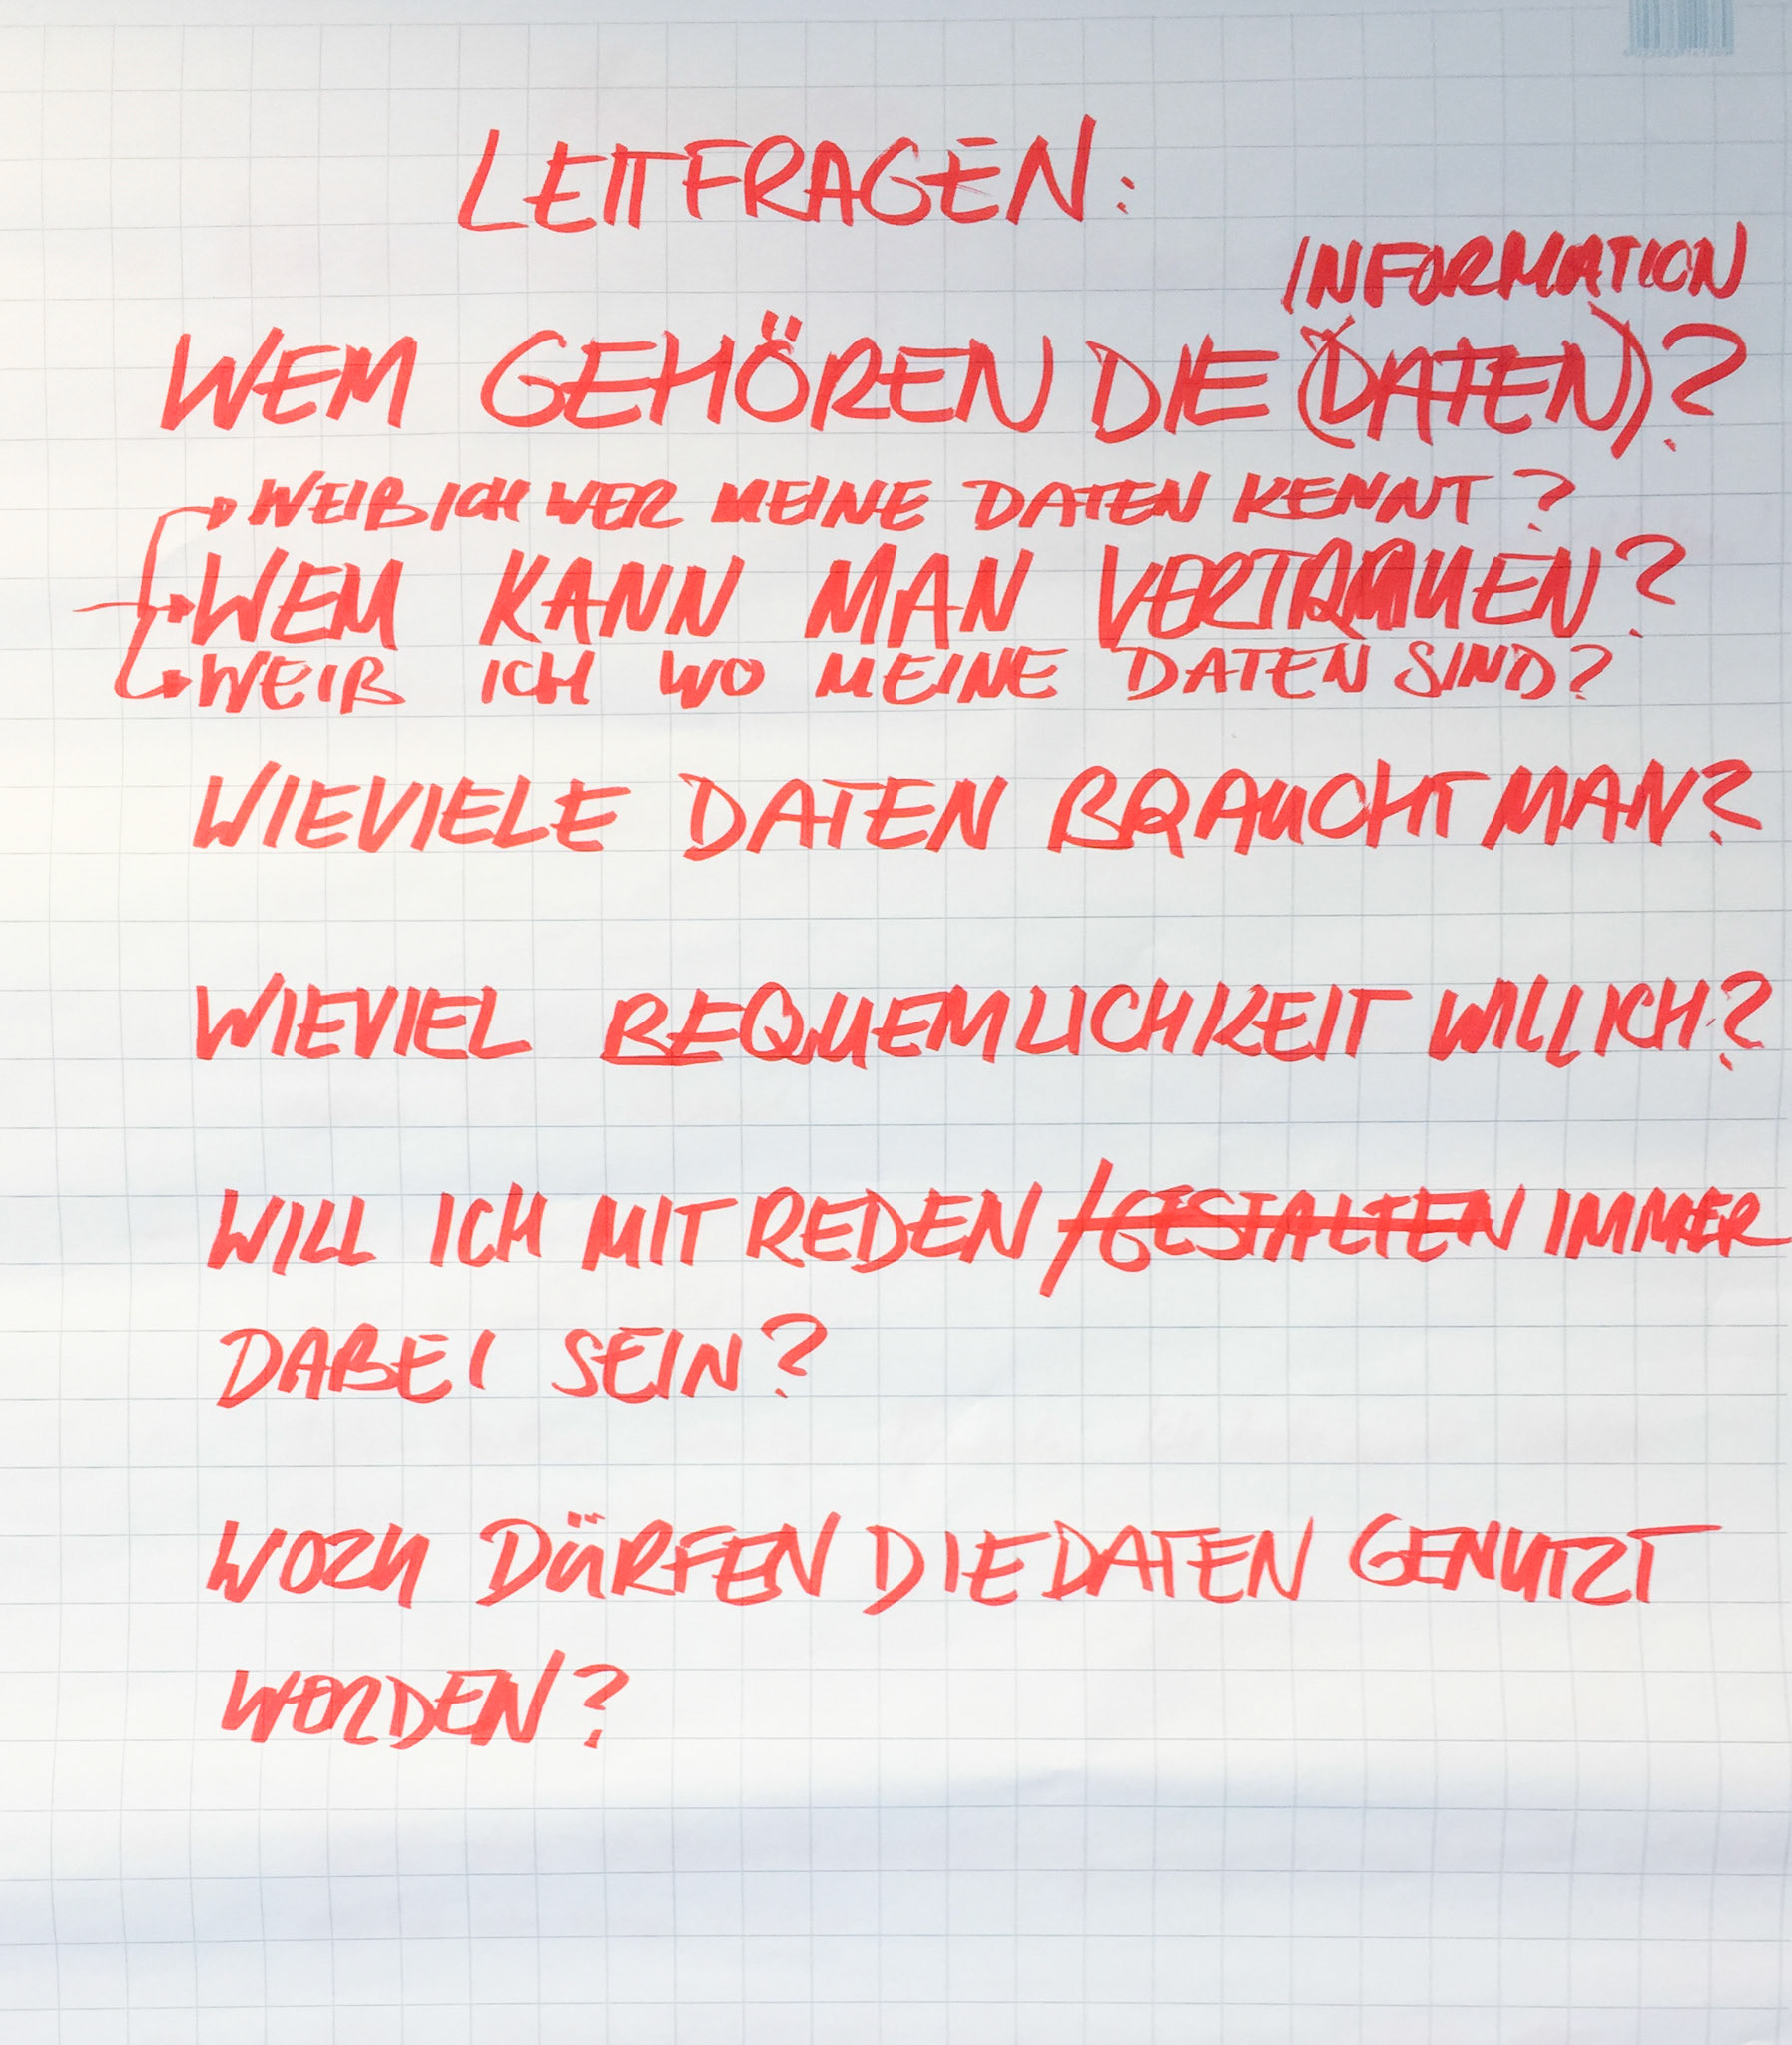 LEITFRAGEN:
INFORMATION
WEM GEHÖREN DIE (DATEN)?
WEIß ICH WER MEINE DATEN KENNT?
WEM KANN MAN VERTRAUEN?
WEIß ICH WO MEINE DATEN SIND?
WIEVIELE DATEN BRAUCHT MAN?
WIEVIEL BEQUEMLICHKEIT WILL ICH?
WILL ICH MIT REDEN /GESTALTEN IMMER
DABEI SEIN?
WOZU DÜRFEN DIE DATEN GENUTZT
WERDEN?